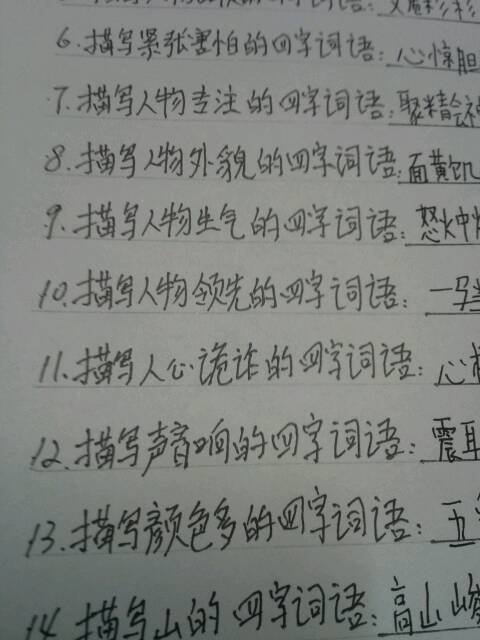 词语:
6.描写紧张害怕的四字词语:心惊胆
7.描写人物专注的四字词语:聚精会神
8.描写人物外貌的四字词语:面黄饥
9.描写人物生气的四字词语:怒火中
10.描写人物领先的四字词语:一马当
11.描写人心诡诈的四字词语:心
12.描写声音响的四字词语:震耳
13.描写颜色多的四字词语:五
14.描写山的四字词语:高山峻